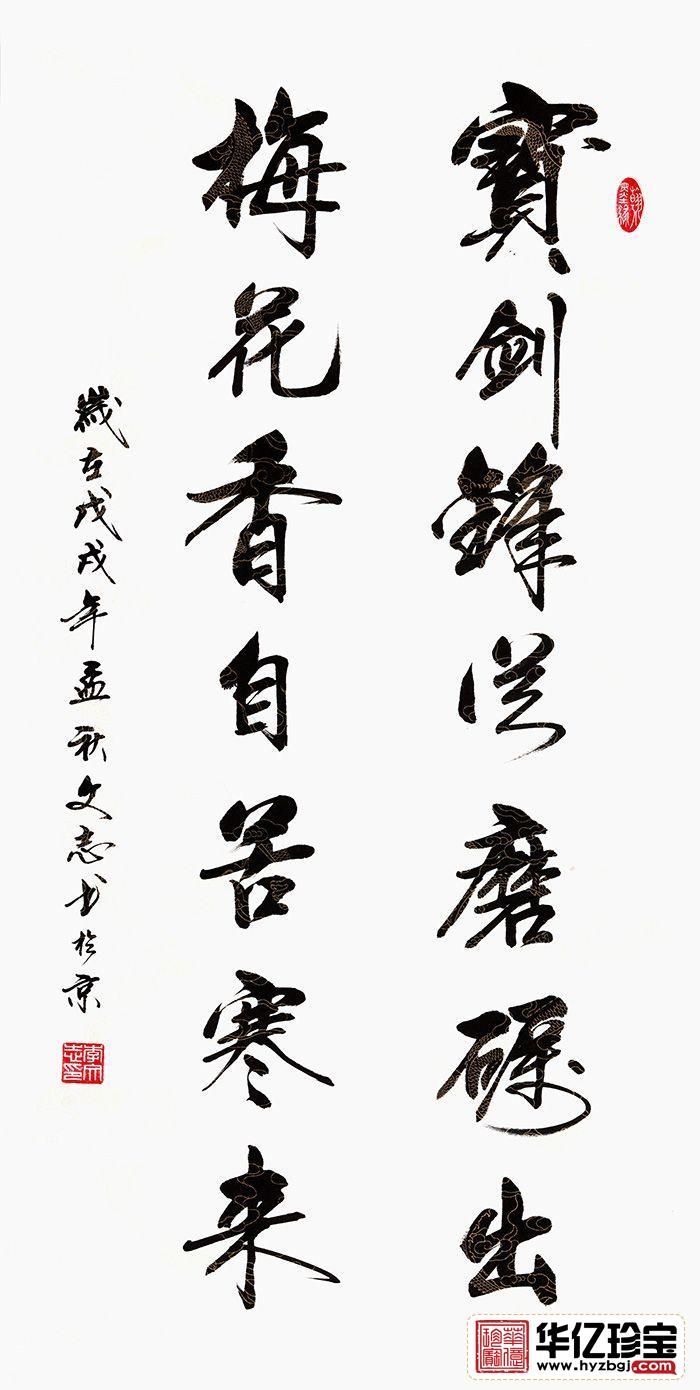 寶劍鋒從磨礪出
梅花香自苦寒来
歲在戊戌年孟秋文志书於京
李文志印
华亿珍宝
www.hyzbgj.com